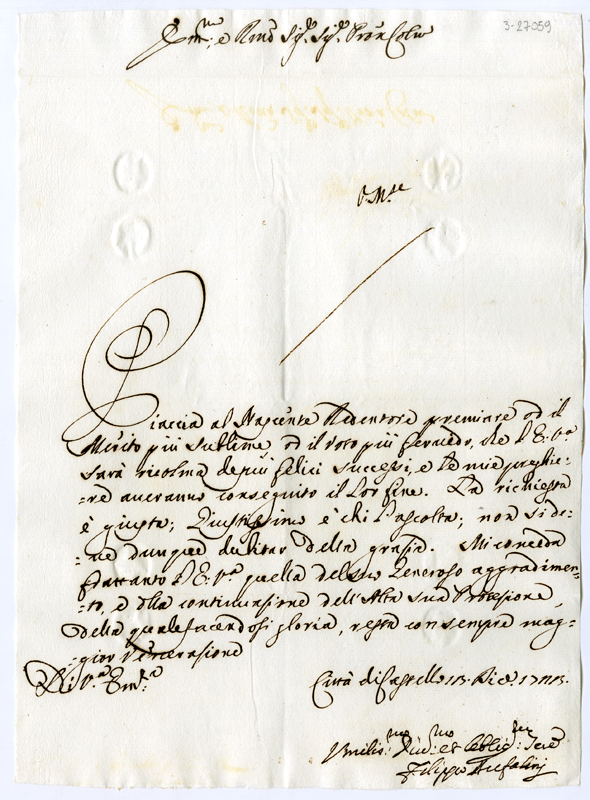 3-27059
Em:mo e Rmo Sig:r Sig:r Pron Colmo
Piaccia al Nascente Redentore premiare od il
Merito più sublime, od il voto più fervido, che l'E: Va
sarà ricolma de più felici successi, e le mie preghie-
-re averanno conseguito il lor fine. La richiesta
è giusta; Giustissimo è chi l'ascolta; non si de-
-ve dunque dubitar della grazia. Mi conceda
frattanto l'E: Va quella del suo Generoso aggradimen-
-to, e della continuazione dell'Alta sua Protezione,
della quale facendosi gloria, resta con sempre mag-
-gior Venerazione
Di V:a Em:a
Città di Castello 15. Dice.
Umilis:mo Div:mo et Obblig:
Filippo